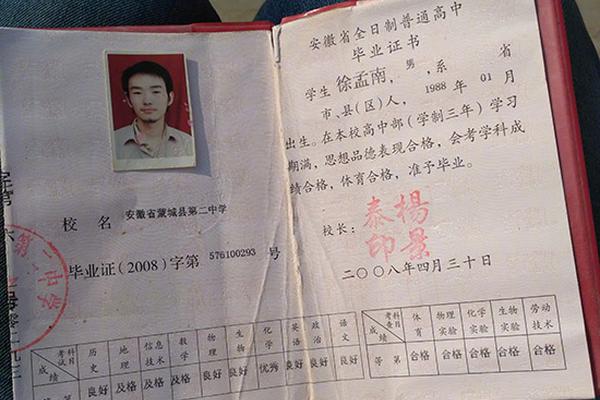 校名 安徽省蒙城县第二中学
毕业证(2008)字第 576100293 号
第二中学
考试科目 历史 地理 信息技术 数学 物理 生物 化学 英语 政治 语文
成绩 良好 及格 及格 及格 良好 良好 优秀 良好 良好 良好
安徽省全日制普通高中
毕业证书
学生 徐孟南，男，系 省
市、县(区)人，1988年01月
出生。在本校高中部(学制三年)学习
期满，思想品德表现合格，会考学科成
绩合格，体育合格，准予毕业。
校长：
杨景
泰印
二〇〇八年四月三十日
考查科目 体育 物理实验 化学实验 生物实验 劳动技术
等第 合格 合格 合格 合格 合格